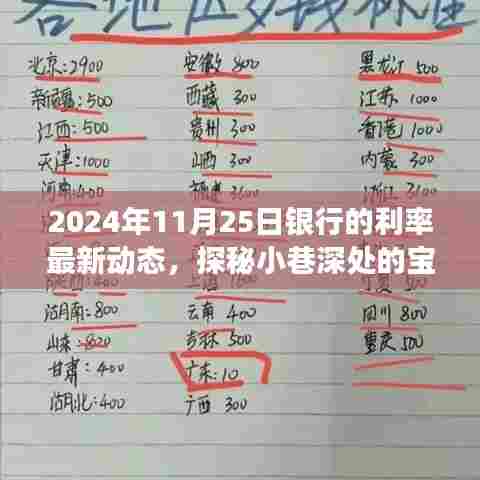 各地压岁钱标准
北京:2900 安徽 800 黑龙江 500
新疆:500 西藏 300 江苏 1000
江西:500 贵州 300 香港 1000
天津:1000 山西 300 内蒙 300
2024年11月25日银行的利率
最新动态，探秘小巷深处的宝
湖南:800 云南 400 四川 800
山东:820 吉林 500 重庆 500
甘肃:400 广东:10
湖北:400 广西 300